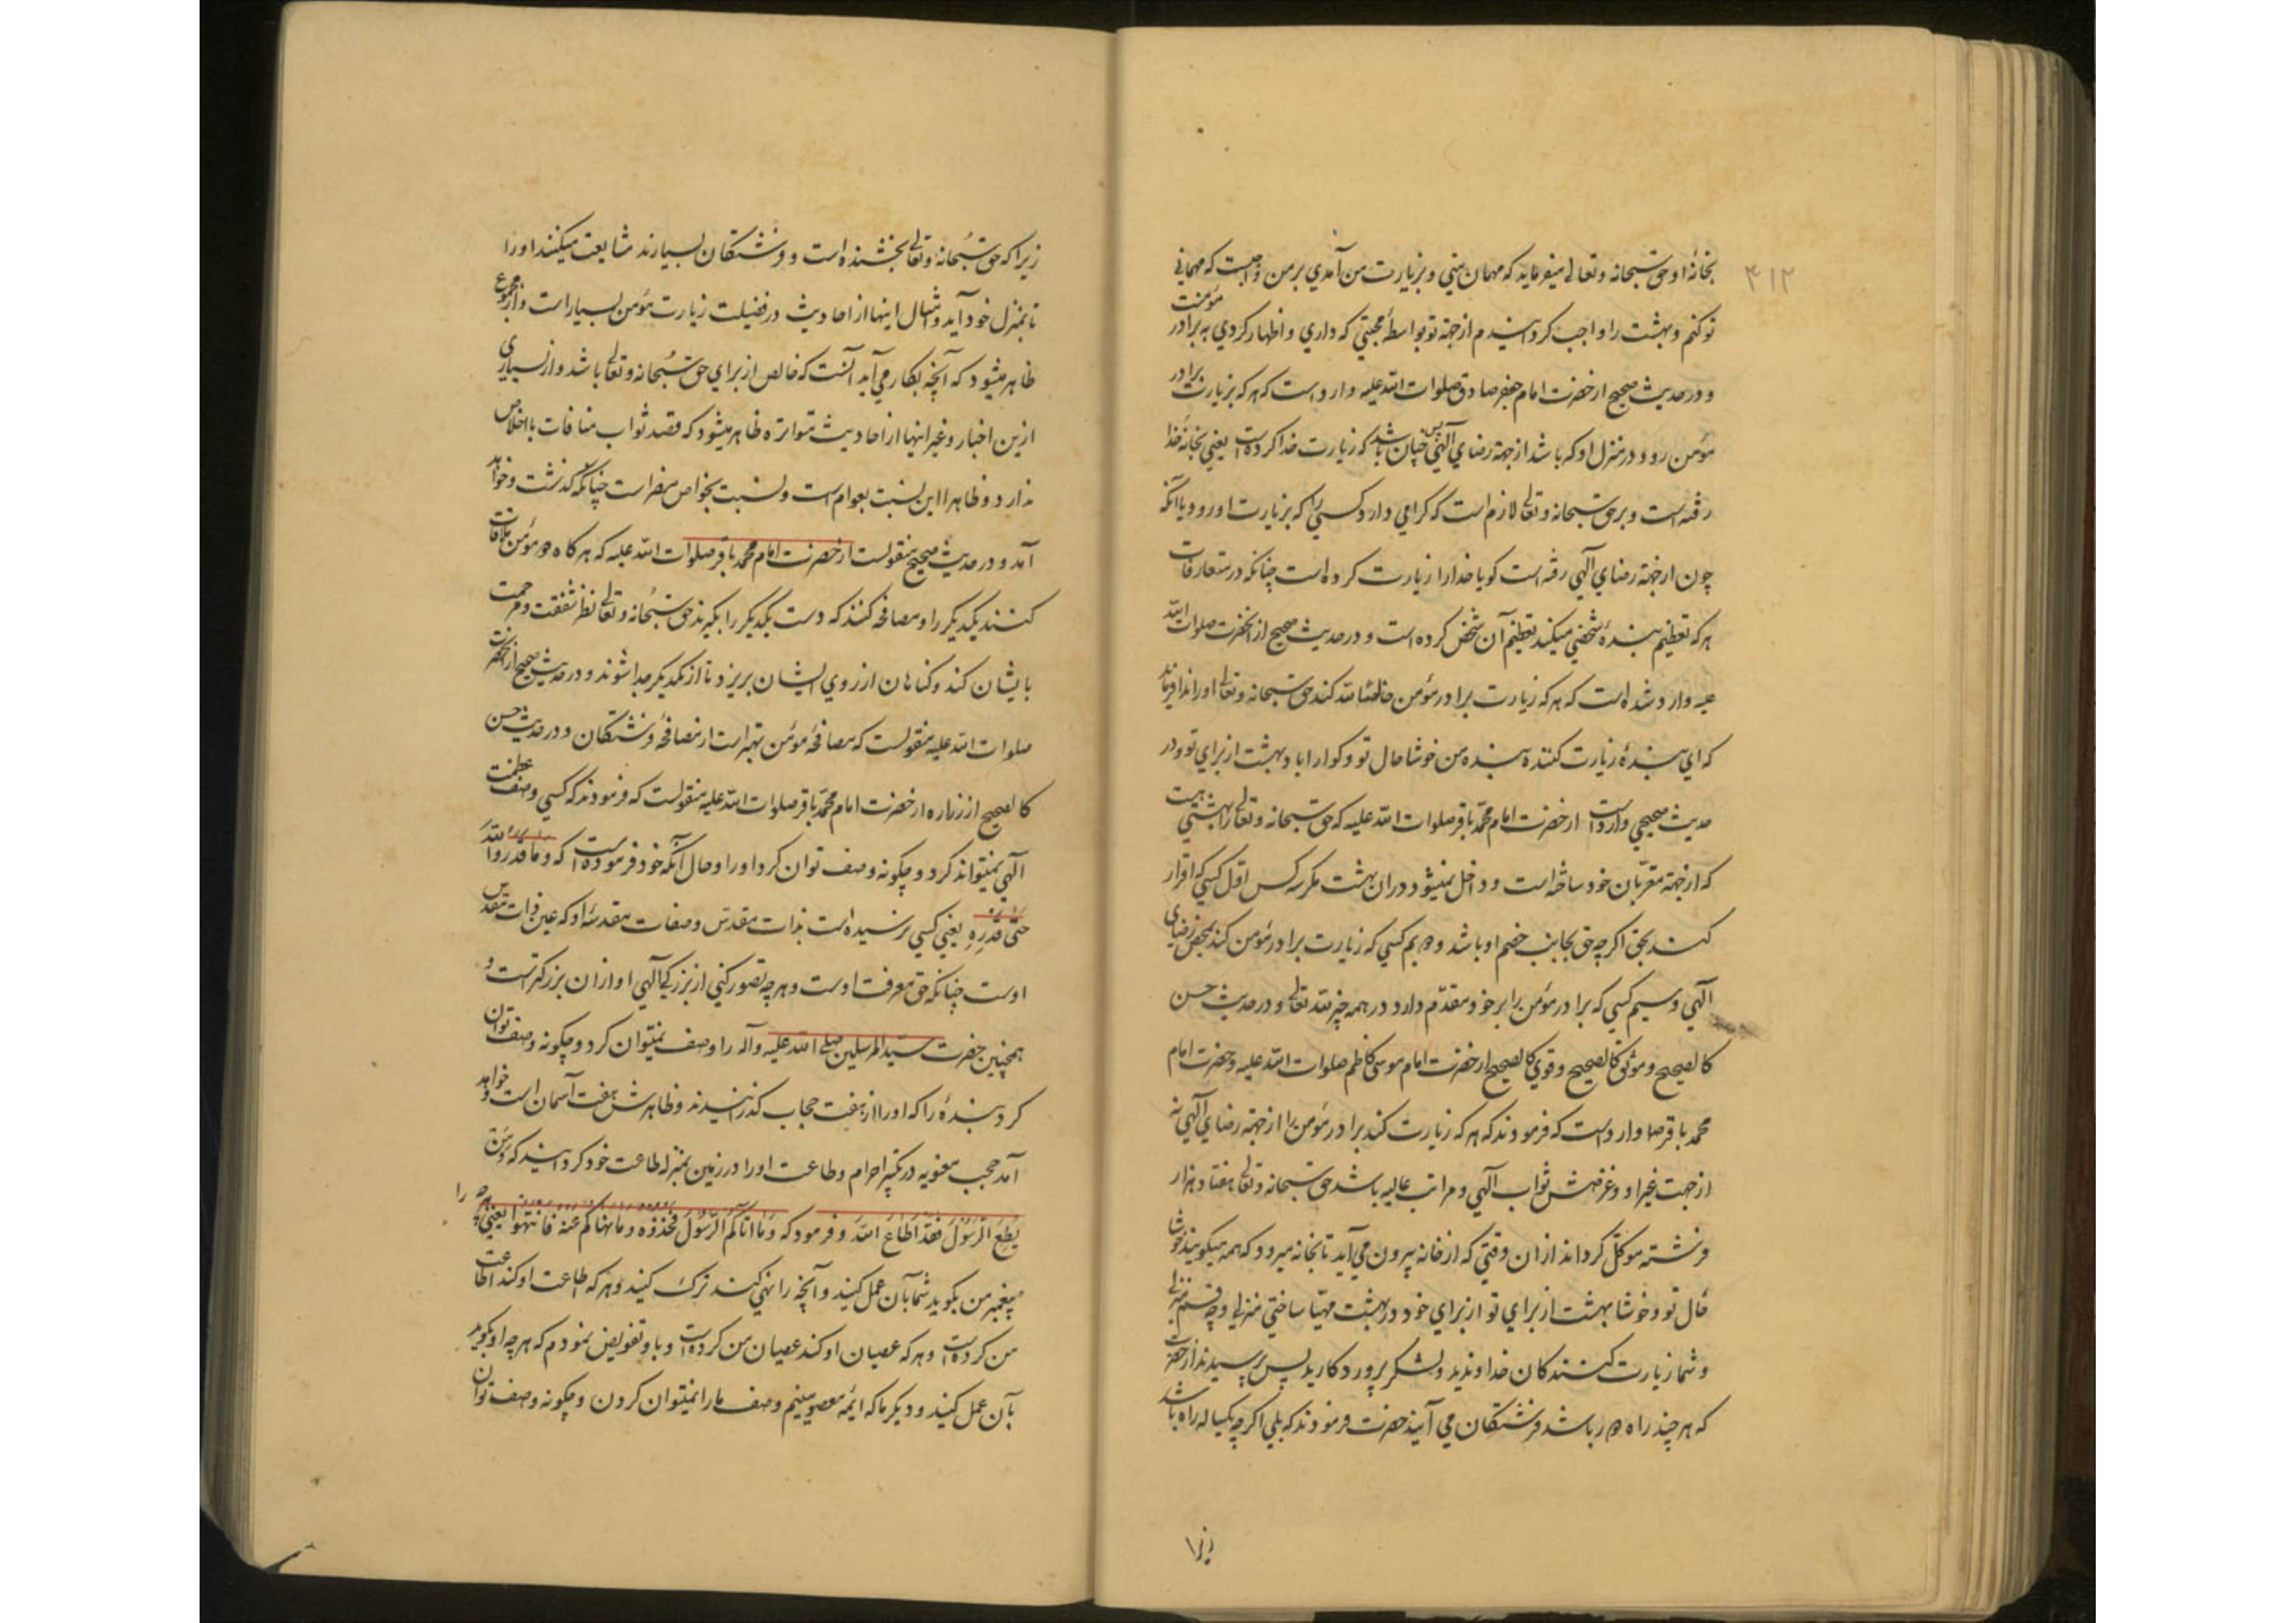 ۴۱۲
بخانهٔ او حق سبحانه و تعالی میفرماید که مهمان منی و بزیارت من آمدي بر من واجبست که مهمانی
تو کنم و بهشت را واجب کردانیدم از جهة تو بواسطهٔ محبتی که داري و اظهار کردي به برادر مؤمنت
و در حدیث صحیح از حضرت امام جعفر صادق صلوات الله علیه وارد است که هر که بزیارت برادر
مؤمن رود در منزل او که باشد از جهة رضاي آلهی پس چنان باشد که زیارت خدا کرده است یعنی بخانه خدا
رفته است و بر حق سبحانه و تعالی لازم است که گرامی دارد کسی را که بزیارت او رود یا آنکه
چون از جهة رضاي آلهی رفته است کویا خدا را زیارت کرده است چنانکه در متعارفات
هر که تعظیم بندهٔ شخصی میکند تعظیم آن شخص کرده است و در حدیث صحیح از آنحضرت صلوات الله
علیه وارد شده است که هر که زیارت برادر مؤمن خالصا لله کند حق سبحانه و تعالی او را ندا فرماید
که اي بندهٔ زیارت کننده بنده من خوشا حال تو و کوارا باد بهشت از براي تو و در
حدیث صحیحی وارد است از حضرت امام محمد باقر صلوات الله علیه که حق سبحانه و تعالی را بهشتی هست
که از جهة مقربان خود ساخته است و داخل نمیشود در ان بهشت مکر سه کس اول کسی که اقرار
کند بحق اکر چه حق بجانب خصم او باشد دویم کسی که زیارت برادر مؤمن کند بمحض رضای
آلهی و سیم کسی که برادر مؤمن را بر خود مقدم دارد در همه چیز لله تعالی و در حدیث حسن
کالصحیح و موثق کالصحیح و قوي کالصحیح از حضرت امام موسی کاظم صلوات الله علیه و حضرت امام
محمد باقر صلا وارد است که فرمودند که هر که زیارت کند برادر مؤمن را از جهة رضاي آلهی نه
از جهت غیر او و غرضش ثواب آلهی و مراتب عالیه باشد حق سبحانه و تعالی هفتاد هزار
فرشته موکل کرداند از ان وقتی که از خانه بیرون می آید تا بخانه میرود که همه میکویند خوشا
حال تو و خوشا بهشت از براي تو از براي خود در بهشت مهیا ساختی منزلی و چه قسم منزلی
و شما زیارت کنندکان خداوندید و لشکر پروردکارید پس پرسیدند از حضرت
که هر چند راه دور باشد فرشتکان می آیند حضرت فرمودند که بلی اکر چه یکساله راه باشد
زیرا
زیرا که حق سبحانه و تعالی بخشنده است و فرشتکان بسیارند مشایعت میکنند او را
تا بمنزل خود آید و امثال اینها از احادیث در فضیلت زیارت مؤمن بسیار است و از مجموع
ظاهر میشود که آنچه بکار می آید آنست که خالص از براي حق سبحانه و تعالی باشد و از بسیاري
ازین اخبار و غیر اینها از احادیث متواتره ظاهر میشود که قصد ثواب منافات با اخلاص
ندارد و ظاهرا این نسبت بعوام است و نسبت بخواص مضر است چنانکه گذشت و خواهد
آمد و در حدیث صحیح منقولست از حضرت امام محمد باقر صلوات الله علیه که هر کاه دو مؤمن ملاقات
کنند یکدیکر را و مصافحه کنند که دست یکدیکر را بکیرند حق سبحانه و تعالی نظر شفقت و مرحمت
بایشان کند و کناهان از روي ایشان بریزد تا از یکدیکر جدا شوند و در حدیث صحیح از آنحضرت
صلوات الله علیه منقولست که مصافحهٔ مؤمن بهتر است از مصافحهٔ فرشتکان و در حدیث حسن
کالصحیح از زراره از حضرت امام محمد باقر صلوات الله علیه منقولست که فرمودند که کسی وصف عظمت
آلهی نمیتواند کرد و چکونه وصف توان کرد او را و حال آنکه خود فرموده است که و ما قدروا الله
حق قدره یعنی کسی نرسیده است بذات مقدس و صفات مقدسهٔ او که عین ذات مقدس
اوست چنانکه حق معرفت اوست و هر چه تصور کنی از بزرکی آلهی او از ان بزرکتر است و
همچنین حضرت سید المرسلین صلی الله علیه و آله را وصف نمیتوان کرد و چکونه وصف توان
کرد بندهٔ را که او را از هفت حجاب کذرانیدند و ظاهرش هفت آسمان است و خواهد
آمد حجب معنویه در تکبیر احرام و طاعت او را در زمین بمنزله طاعت خود کردانید که و من
یطع الرسول فقد اطاع الله و فرمود که و ما اتاکم الرسول فخذوه و ما نهاکم عنه فانتهوا یعنی هر چه را
پیغمبر من بکوید شما بآن عمل کنید و آنچه را نهی کند ترک کنید و هر که طاعت او کند اطاعت
من کرده است و هر که عصیان او کند عصیان من کرده است و باو تفویض نمودم که هر چه او بکوید
بآن عمل کنید و دیکر ما که ائمه معصومینیم وصف ما را نمیتوان کردن و چکونه وصف توان